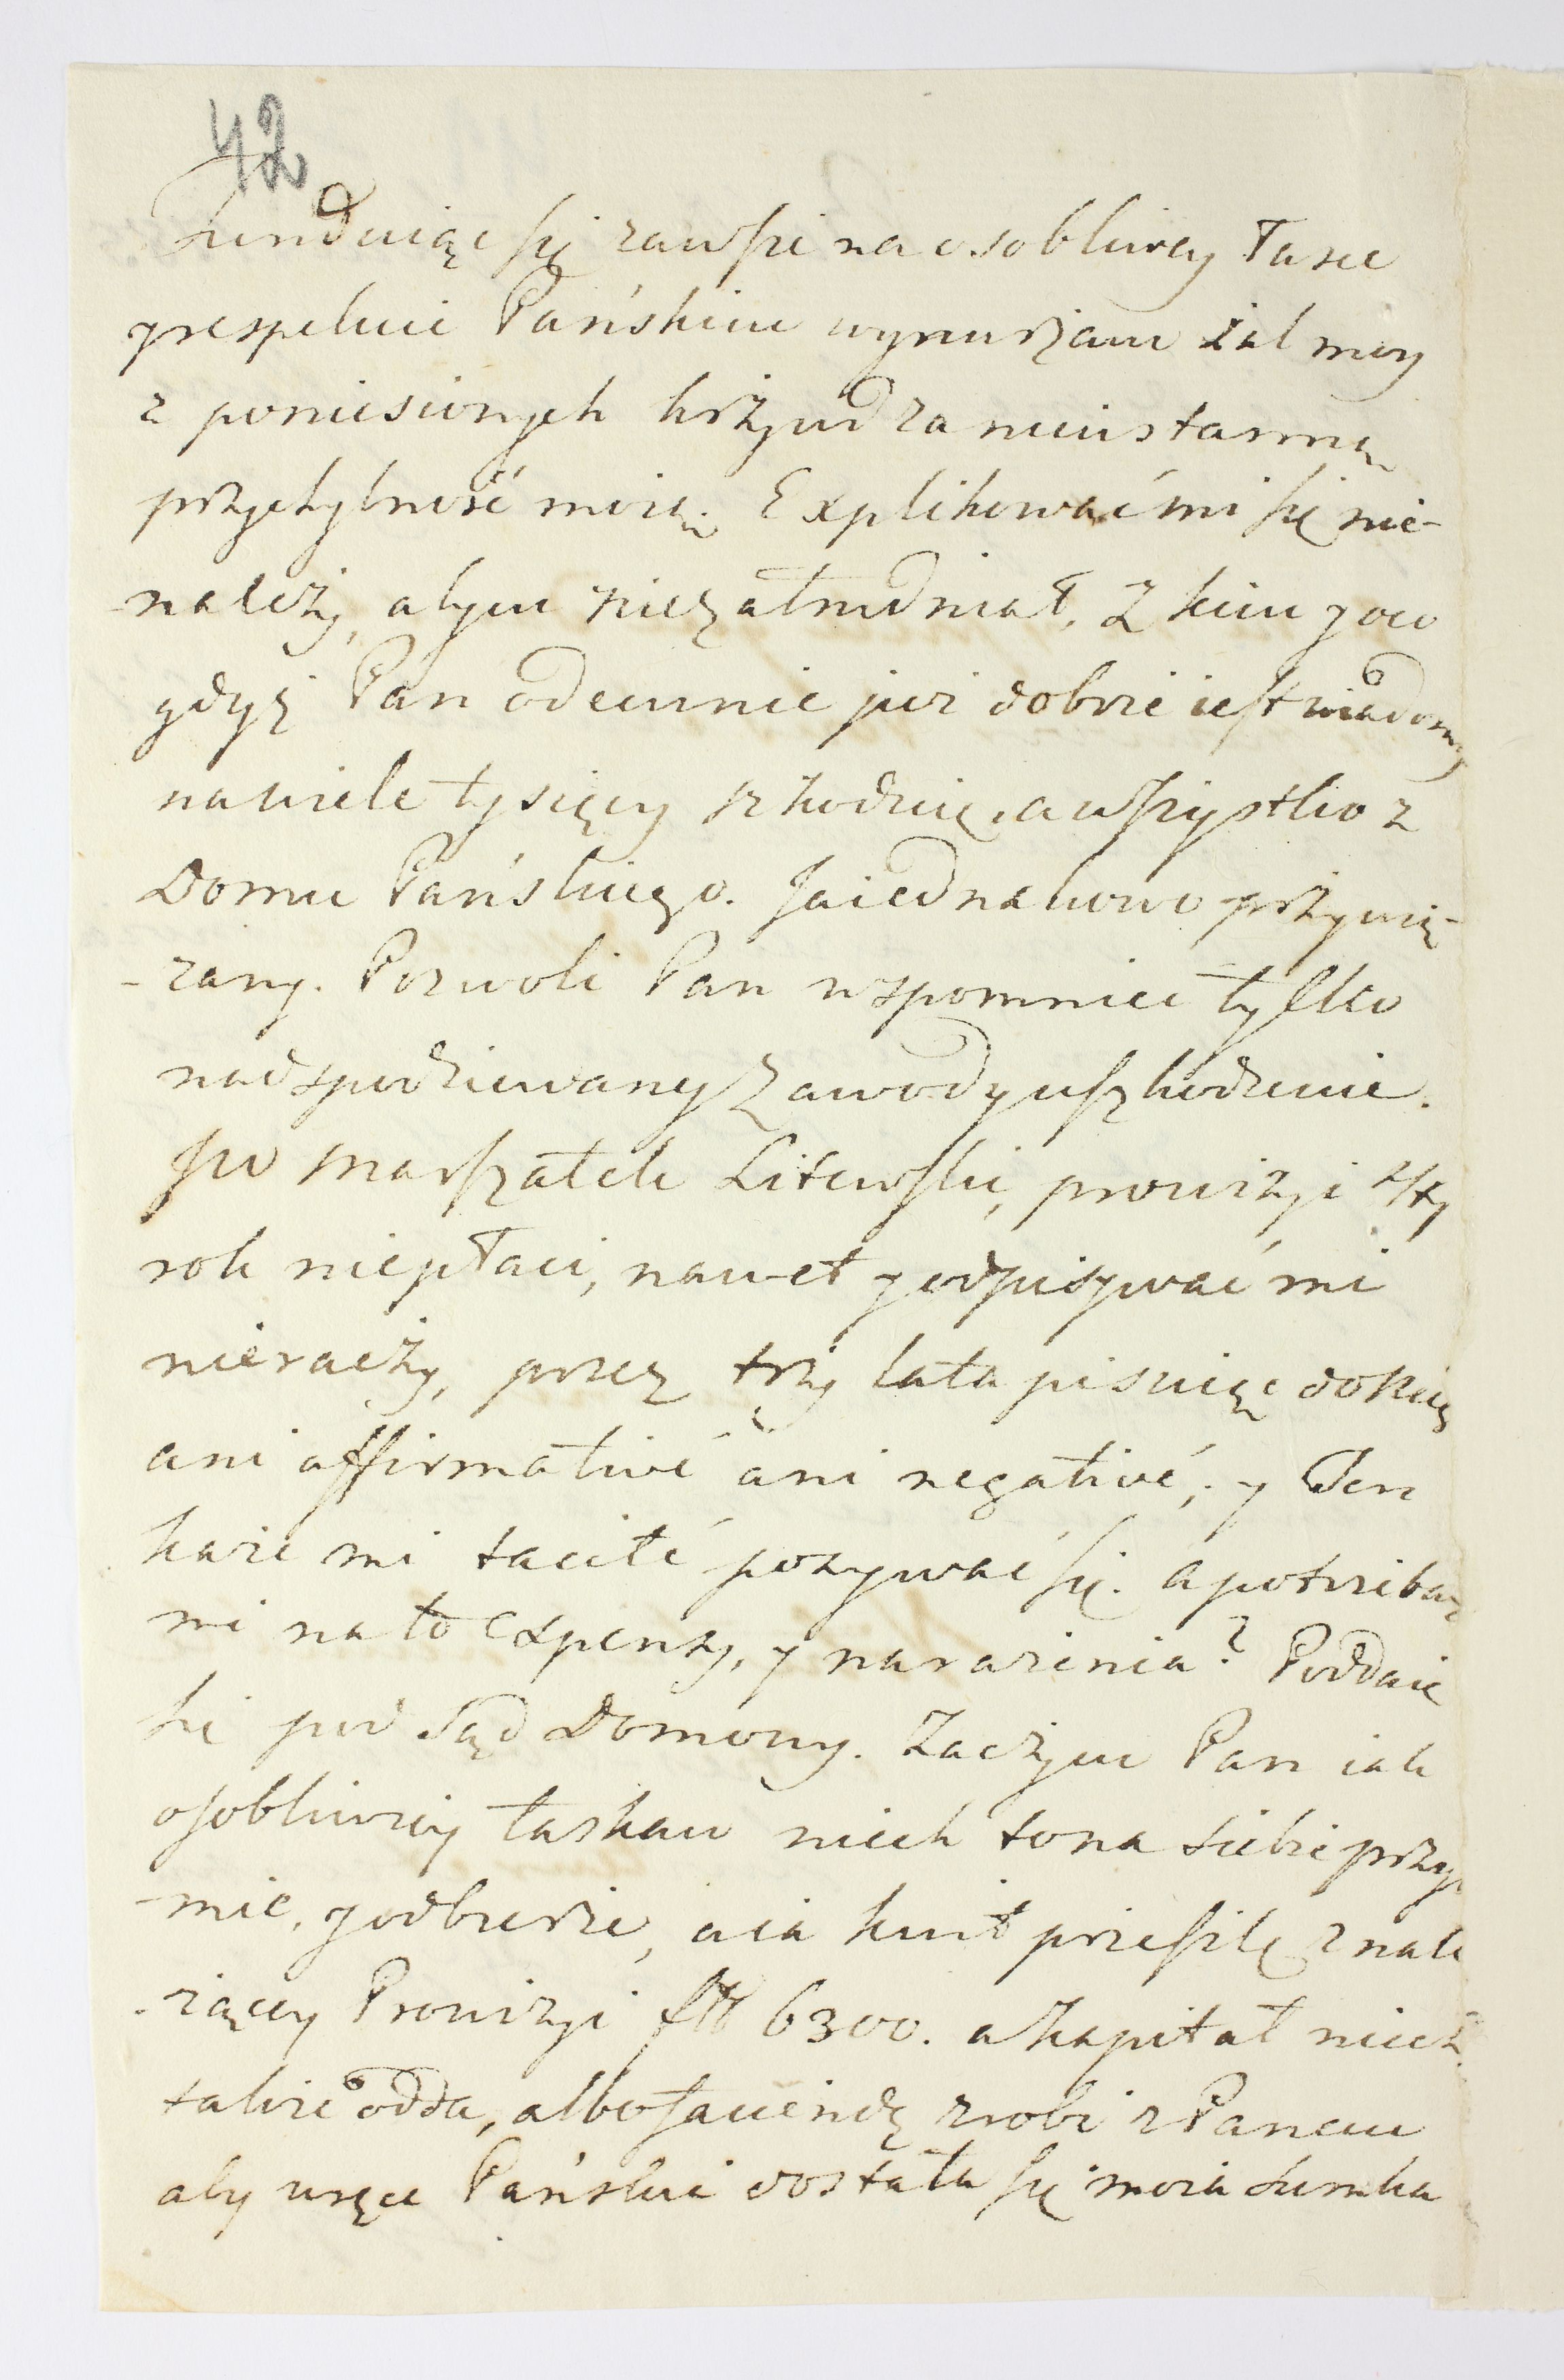 42
Funduiąc się zawsze na osobliwey łasce
y respekcie Pańskim wynurzam żal moy
z poniesionych krzywd za nieustanną
przychylność moią. Explikować mi się nie-
należy, abym niezatrudniał, z kim y oco
gdyż Pan odemnie już dobrze iest wiadomy
na wiele tysięcy szkoduię, a wszystko z
Domu Pańskiego. Ja iednakowo przywią-
-zany. Pozwoli Pan wspomnieć tylko
nadspodziewany zawod y uszkodzenie.
JW Marszałek Litewski, prowizyi
rok niepłaci, nawet y odpisywać mi
nieraczy, przez trzy lata pisuiąc do Niego
ani affirmativé ani negativé, y Ten
każe mi tacité pozywać się. a potrzebaż
mi na to Expensy, y narażenia? Poddaię
się pod Sąd Domowy. Zaczym Pan iak
osobliwszy łaskaw niech to na siebie przy-
-mie, y odbierze, a ia kwit prześzlę z nale
-żącey Prowizyi fll 6300. a kapitał niech
także odda, albo zamendę zrobi z Panem
aby w ręce Pańskie dostała się moia Sumka